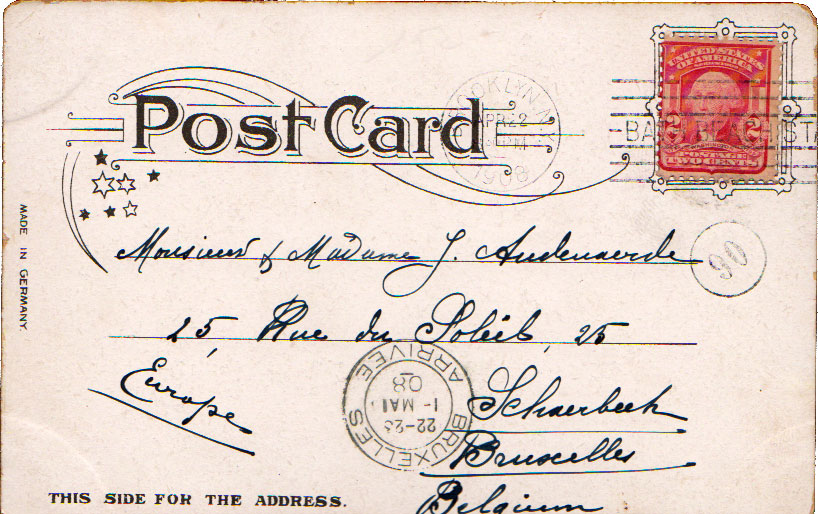 UNITED STATES
OF AMERICA
2 2
POSTAGE
TWO CENTS
BROOKLYN, N.Y.
APR 22
PM
1908
Post Card
MADE IN GERMANY.
Monsieur & Madame J. Audenaerde
90
25, Rue du Soleil, 25
Europe
Schaerbeek
Bruxelles
Belgium
BRUXELLES
22-23
1- MAI
08
ARRIVEE
THIS SIDE FOR THE ADDRESS.